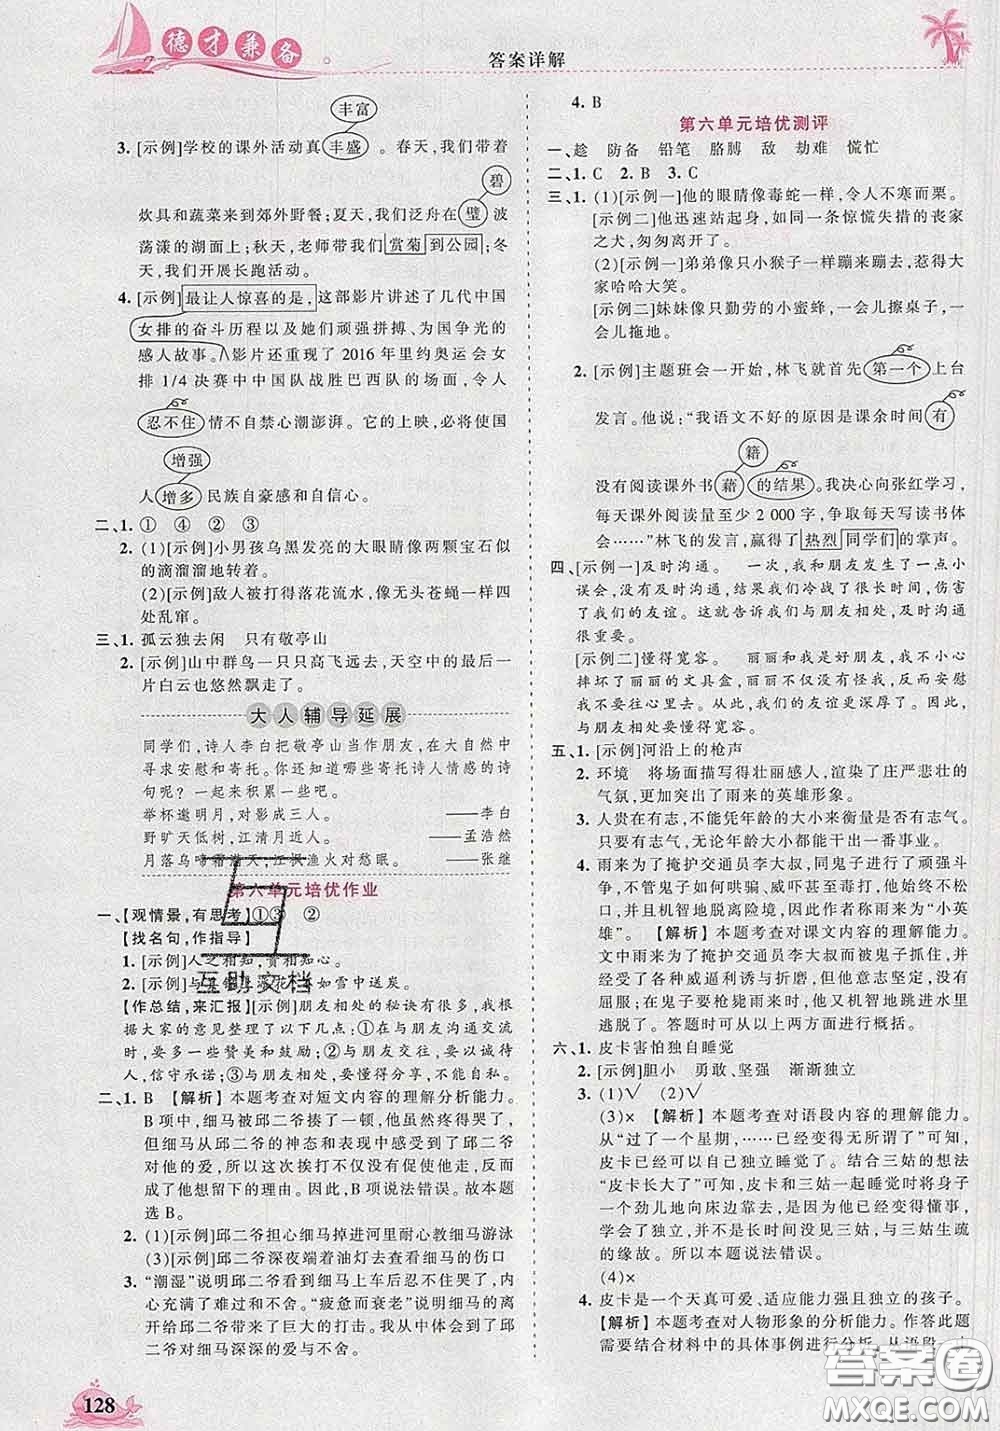 德才兼备
答案详解
丰富
3. [示例]学校的课外活动真丰盛。春天,我们带着
碧
炊具和蔬菜来到郊外野餐;夏天,我们泛舟在璧波
荡漾的湖面上;秋天,老师带我们赏菊到公园;冬
天,我们开展长跑活动。
4. [示例]最让人惊喜的是,这部影片讲述了几代中国
女排的奋斗历程以及她们顽强拼搏、为国争光的
感人故事。影片还重现了 2016 年里约奥运会女
排 1/4 决赛中中国队战胜巴西队的场面,令人
忍不住情不自禁心潮澎湃。它的上映,必能令国
增强
人增多民族自豪感和自信心。
二、1. ① ④ ② ③
2. (1)[示例]小男孩乌黑发亮的大眼睛像两颗宝石似
的滴溜溜地转着。
(2)[示例]敌人被打得落花流水,像无头苍蝇一样四
处乱窜。
三、1. 孤云独去闲 只有敬亭山
2. [示例]山中群鸟一只只高飞远去,天空中的最后一
片白云也悠然飘走了。
大人辅导延展
同学们,诗人李白把敬亭山当作朋友,在大自然中
寻求安慰和寄托。你还知道哪些寄托诗人情感的诗
句呢?一起来积累一些吧。
举杯邀明月,对影成三人。 ——李白
野旷天低树,江清月近人。 ——孟浩然
月落乌啼霜满天,江枫渔火对愁眠。 ——张继
第六单元培优作业
一、【观情景,有思考】①③ ②
【找名句,作指导】
1. [示例]人之相知,贵相知心。
2. [示例]与其锦上添花,不如雪中送炭。
【作总结,来汇报】[示例]朋友相处的秘诀有很多,我根
据大家的意见整理了以下几点:①在与朋友沟通交流
时,要多一些赞美和鼓励;②与朋友交往,要以诚待
人,信守承诺;③与朋友相处,要懂得分享,不能自私。
二、1. B 【解析】本题考查对短文内容的理解分析能力。
B 项中,细马被邱二爷揍了一顿,他虽然疼得哭了,
但细马从邱二爷的神态和表现中感受到了邱二爷
对他的爱,所以这次挨打不仅没有促使他走,反而成
了他想留下的理由。因此,B 项说法错误。故本题
选 B。
2. (1)[示例]邱二爷担心细马掉进河里耐心教细马游泳
(3)[示例]邱二爷深夜端着油灯去查看细马的伤口
3. “潮湿”说明邱二爷看到细马上车后忍不住哭了,内
心充满了难过和不舍。“疲惫而衰老”说明细马的离
开给邱二爷带来了巨大的打击。我从中体会到了邱
二爷对细马深深的爱与不舍。
128
4. B
第六单元培优测评
一、趁 防备 铅笔 胳膊 敌 劫难 慌忙
二、1. C 2. B 3. C
三、1. (1)[示例一]他的眼睛像毒蛇一样,令人不寒而栗。
[示例二]他迅速站起身,如同一条惊慌失措的丧家
之犬,匆匆离开了。
(2)[示例一]弟弟像只小猴子一样蹦来蹦去,惹得大
家哈哈大笑。
[示例二]妹妹像只勤劳的小蜜蜂,一会儿擦桌子,一
会儿拖地。
2. [示例]主题班会一开始,林飞就首先第一个上台
发言。他说:“我语文不好的原因是课余时间有
籍
没有阅读课外书藉的结果。我决心向张红学习,
每天课外阅读量至少 2 000 字,争取每天写读书体
会……”林飞的发言,赢得了热烈同学们的掌声。
四、[示例一]及时沟通。 一次,我和朋友发生了一点小
误会,我们没有及时沟通,结果我们冷战了很长时间,影响了
我们的友谊。这就告诉我们与朋友相处,及时沟通
很重要。
[示例二]懂得宽容。 丽丽和我是好朋友,我不小心
摔坏了丽丽的文具盒,丽丽不仅没有怪我,反而安慰
我不要往心里去。我们的友谊更深厚了。因此,我们
与朋友相处要懂得宽容。
五、1. [示例]河沿上的枪声
2. 环境 将场面描写得壮丽感人,渲染了庄严悲壮的
气氛,更加突出了雨来的英雄形象。
3. 人贵在有志,不能凭年龄的大小来衡量是否有志气。
只要有志气,无论年龄大小都能干出一番事业。
4. 雨来为了掩护交通员李大叔,同鬼子进行了顽强斗
争,不管鬼子如何哄骗、威吓甚至毒打,他始终不松
口,并且机智地脱离险境,因此作者称雨来为“小英
雄”。 【解析】本题考查对课文内容的理解能力。
文中雨来为了掩护交通员李大叔而被鬼子抓住,并
经受了各种威逼利诱与折磨,但他意志坚定,没有
屈服;在鬼子要枪毙雨来时,他又机智地跳进水里
逃脱了。答题时可从以上两方面进行概括。
六、1. 皮卡害怕独自睡觉
2. [示例]胆小 勇敢、坚强 渐渐独立
3. (1)√ (2)√
(3)× 【解析】本题考查对语段内容的理解能力。
从“过了一个星期,……已经变得无所谓了”可知,
皮卡已经可以自己独立睡觉了。结合三姑的想法
“皮卡长大了”可知,皮卡和三姑一起睡觉时将身子
一个劲儿地向床边靠是因为他已经变得懂得害羞,
学会了独立,并不是长时间没见三姑,与三姑生疏
的缘故。所以本题说法错误。
(4)×
4. 皮卡是一个天真可爱、适应能力强且独立的孩子。
【解析】本题考查对人物形象的分析能力。作答此题
需要结合材料中的具体事例进行分析。从语段一中
互助文档
答案卷
MXQE.COM